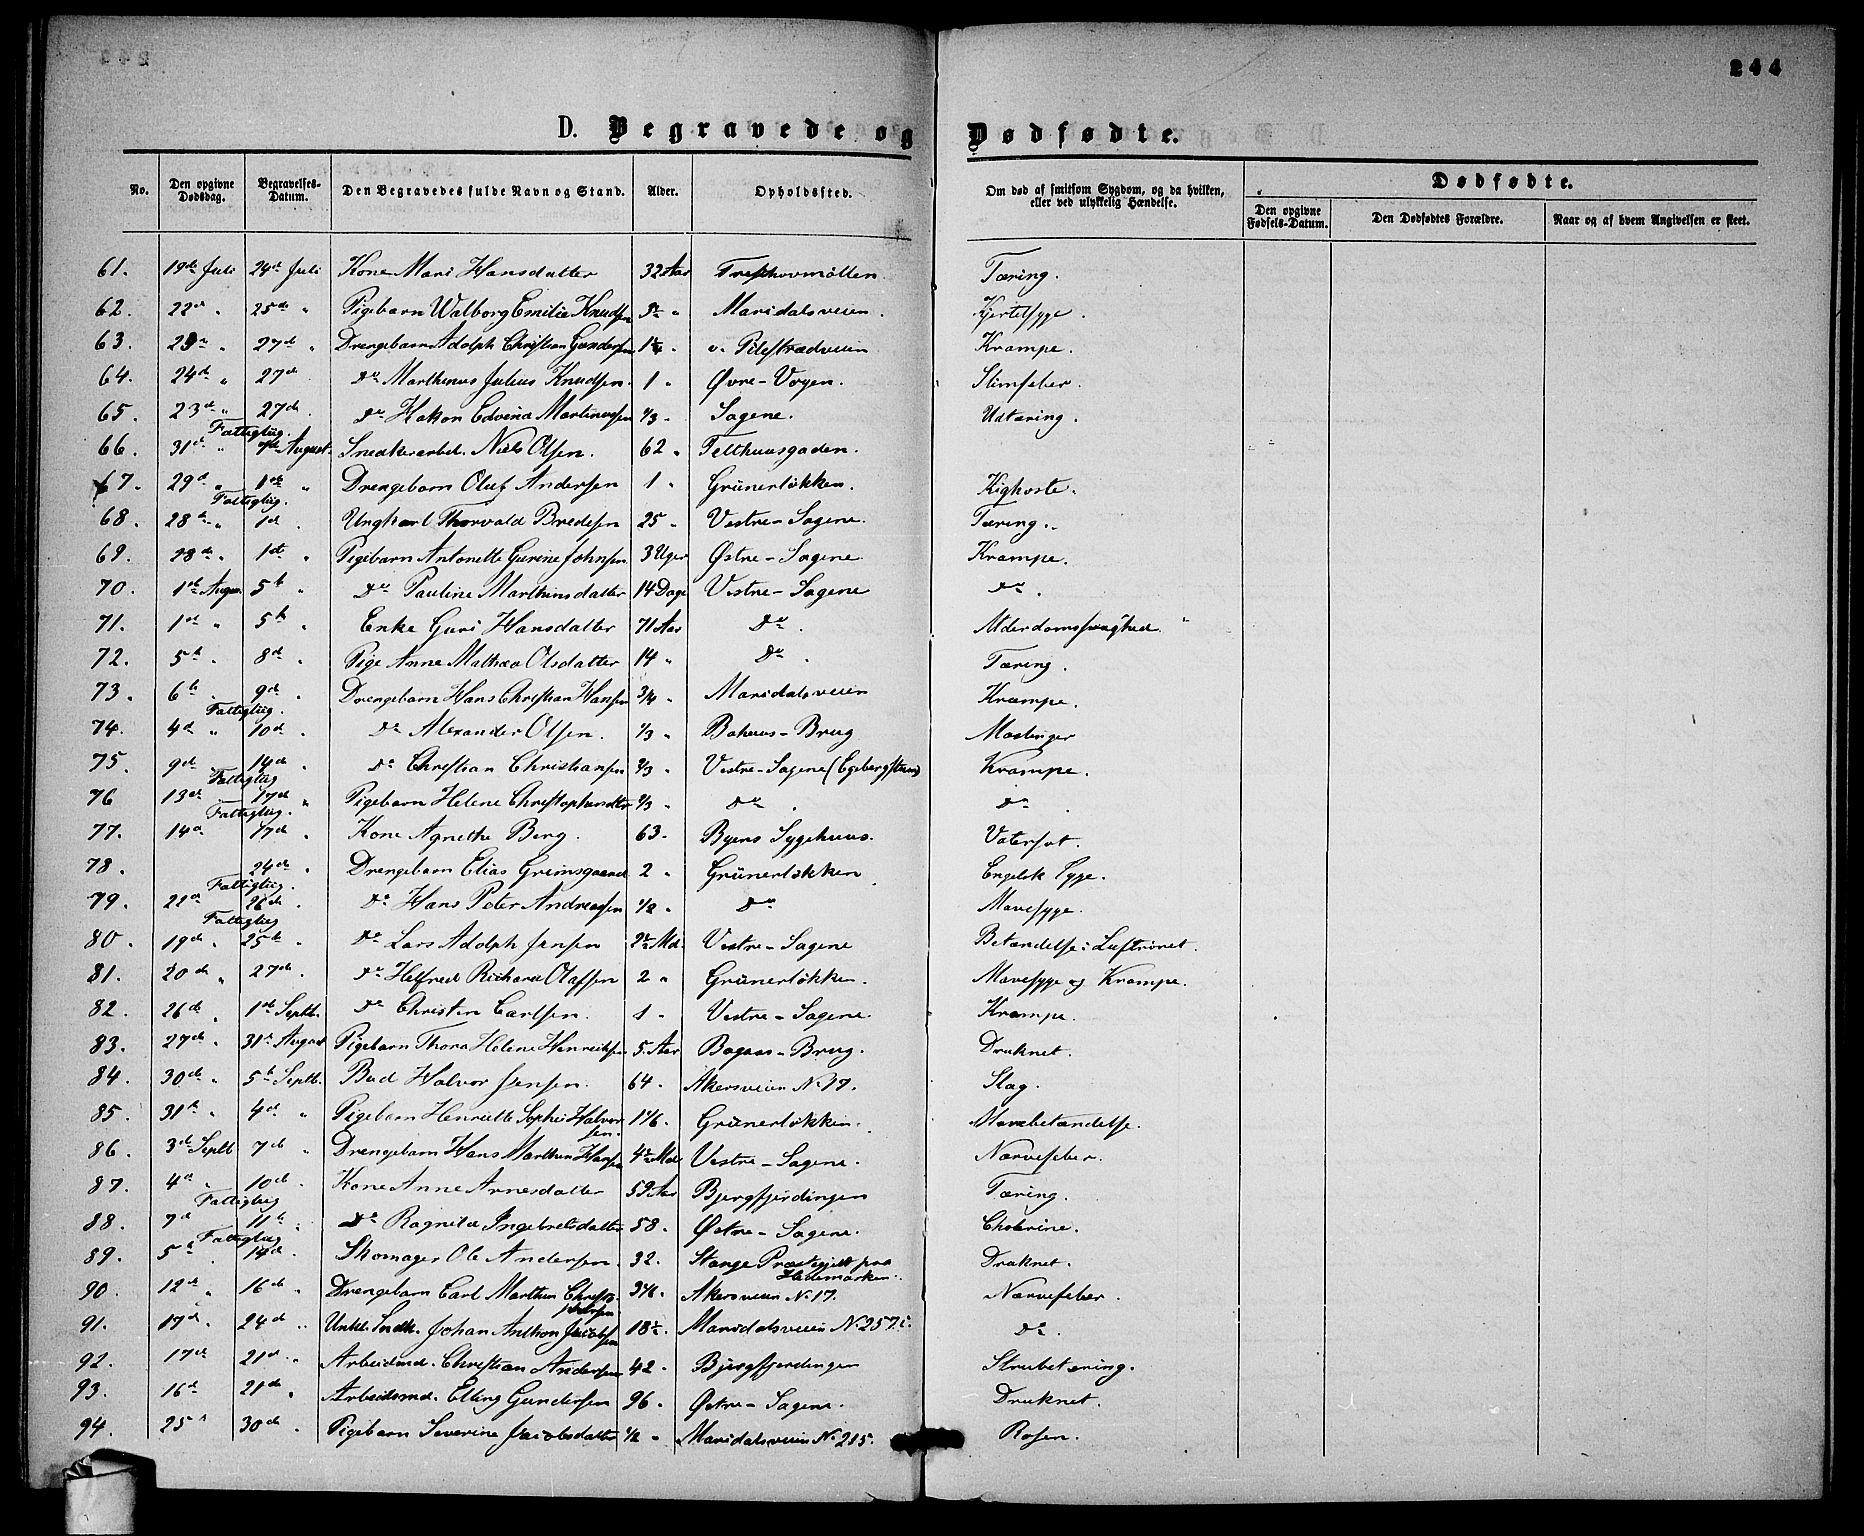 244
D. Begravede og Dødfødte.
No. Den opgivne Dødsdag. Begravelses-Datum. Den Begravedes fulde Navn og Stand. Alder. Opholdssted. Om død af smitsom Sygdom, og da hvilken, eller ved ulykkelig Hændelse. Dødfødte.
Den opgivne Fødsels-Datum. Den Dødfødtes Forældre. Naar og af hvem Angivelsen er skeet.
61. 19de Juli 24de Juli Kone Mari Hansdatter 32 Aar Treschowmöllen Tæring.
62. 22de " 25de " Pigebarn Walborg Emilie Knudsen " Maridalsveien. Kjertelsyge.
63. " 27de " Drengebarn Adolph Christian Gundersen 1¼ " v. Pilestrædveien Krampe.
64. 24de " 27de Do Marthinus Julius Knudsen. 1 " Øvre-Voyen. Slimfeber.
65. 23de " 27de Do Hakon Edvind Martinussen ⅓ " Sagene. Udtæring.
Fattiglig.
66. 31de " August. Snedkerarbeid. Niels Olsen. 62 " Telthuusgaden.
67. 29de " 1ste " Drengebarn Oluf Andersen 1 " Grünerløkken. Kighoste.
Fattiglig.
68. 28de " 1ste " Ungkarl Thorvald Bredesen 25 " Vestre-Sagene. Tæring.
69. 28de " 1ste " Pigebarn Antonette Gurine Johnsen 3 Uger Østre-Sagene Krampe.
70. 1ste Augus. 5te " Do Pauline Marthinsdatter 14 Dage Vestre-Sagene Do.
71. 1ste " 5te " Enke Guri Hansdatter 71 Aar Do. Alderdomssvaghed.
72. 5te " 8de " Pige Anne Mathea Olsdatter 14 " Do. Tæring.
73. 6te " 9de " Drengebarn Hans Christian Hansen ¾ " Maridalsveien Krampe.
Fattiglig.
74. 4de " 10de " Do Alexander Olsen. ⅓ " Bahuus-Brug Meslinger
75. 9de " 14de " Do Christian Christiansen ⅔ " Vestre-Sagene (Egebergstuen) Krampe.
Fattiglig
76 13de " 17de " Pigebarn Helene Christophersdatter ⅔ " Do. Do.
Fattiglig.
77. 14de 17de " Kone Agnethe Berg. 63. Byens Sygehuus. Vatersot.
78. 24de " Drengebarn Elias Grimsgaard 2 " Grünerløkken. Engelsk Syge.
Fattiglig.
79. 22de 26de " Do Hans Peter Andreassen ½ " Do Mavesyge.
Fattiglig
80. 19de " 25te " Do Lars Adolph Jensen 2½ Md. Vestre-Sagene Betændelse i Luftrøret.
81. 20de " 27de " Do Helfred Richard Olafsen 2 " Grünerløkken. Mavesyge og Krampe.
82. 26de " 1ste Septb. Do Christen Carlsen. 1 " Vestre-Sagene. Krampe.
83. 27de " 31te August Pigebarn Thora Helene Henriksen 5. Aar Bagaas-Brug. Druknet.
84. 30de " 5te Septb. Bud Halvor Jensen. 64. Akersveien No 17. Slag.
85. 31te " 4de " Pigebarn Henriette Sophie Halvorsen. 1 1/6. Grünerløkken. Mavebetændelse.
86. 3de Septb 7de " Drengebarn Hans Marthin Hansen 4½ Md. Vestre-Sagene. Nervefeber.
87. 4de " 10de " Kone Anne Arnesdatter 59 Aar Bjergfjerdingen Tæring.
Fattiglig
88. 7de 11te " Do Ragnild Ingebretsdatter 58. Østre-Sagene. Cholerine.
Fattiglig
89. 5te 14de " Skomager Ole Andersen. 32. Stange Præstegjeld paa Hedemarken. Druknet.
90. 12te " 16de " Drengebarn Carl Marthin Christophersen 3 1/6. Akersveien No 17. Nervefeber.
91. 17de " 24de " Johan Anthon Jacobsen 18½. Maridalsveien No 257 Do.
92. 17de 21de " Arbeidsmd. Christian Andersen 42. Bjergfjerdingen Strubetæring.
93. 16de 21de " Arbeidsmd. Elling Gundersen 96. Østre-Sagene. Druknet.
94. 25 30de " Pigebarn Severine Jacobsdatter ½ " Maridalsveien No 215. Rosen.